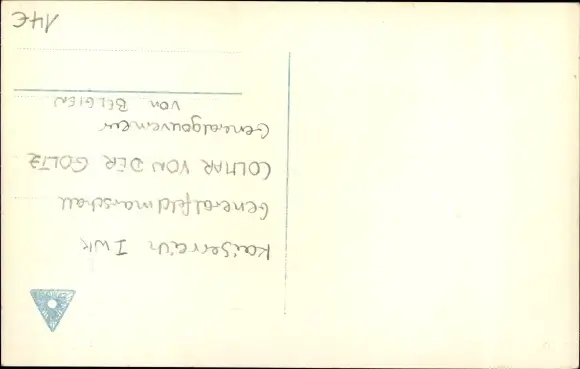 Kaiserreich I WK
Generalfeldmarschall
COLMAR VON DER GOLTZ
Generalgouverneur
VON BELGIEN
14€